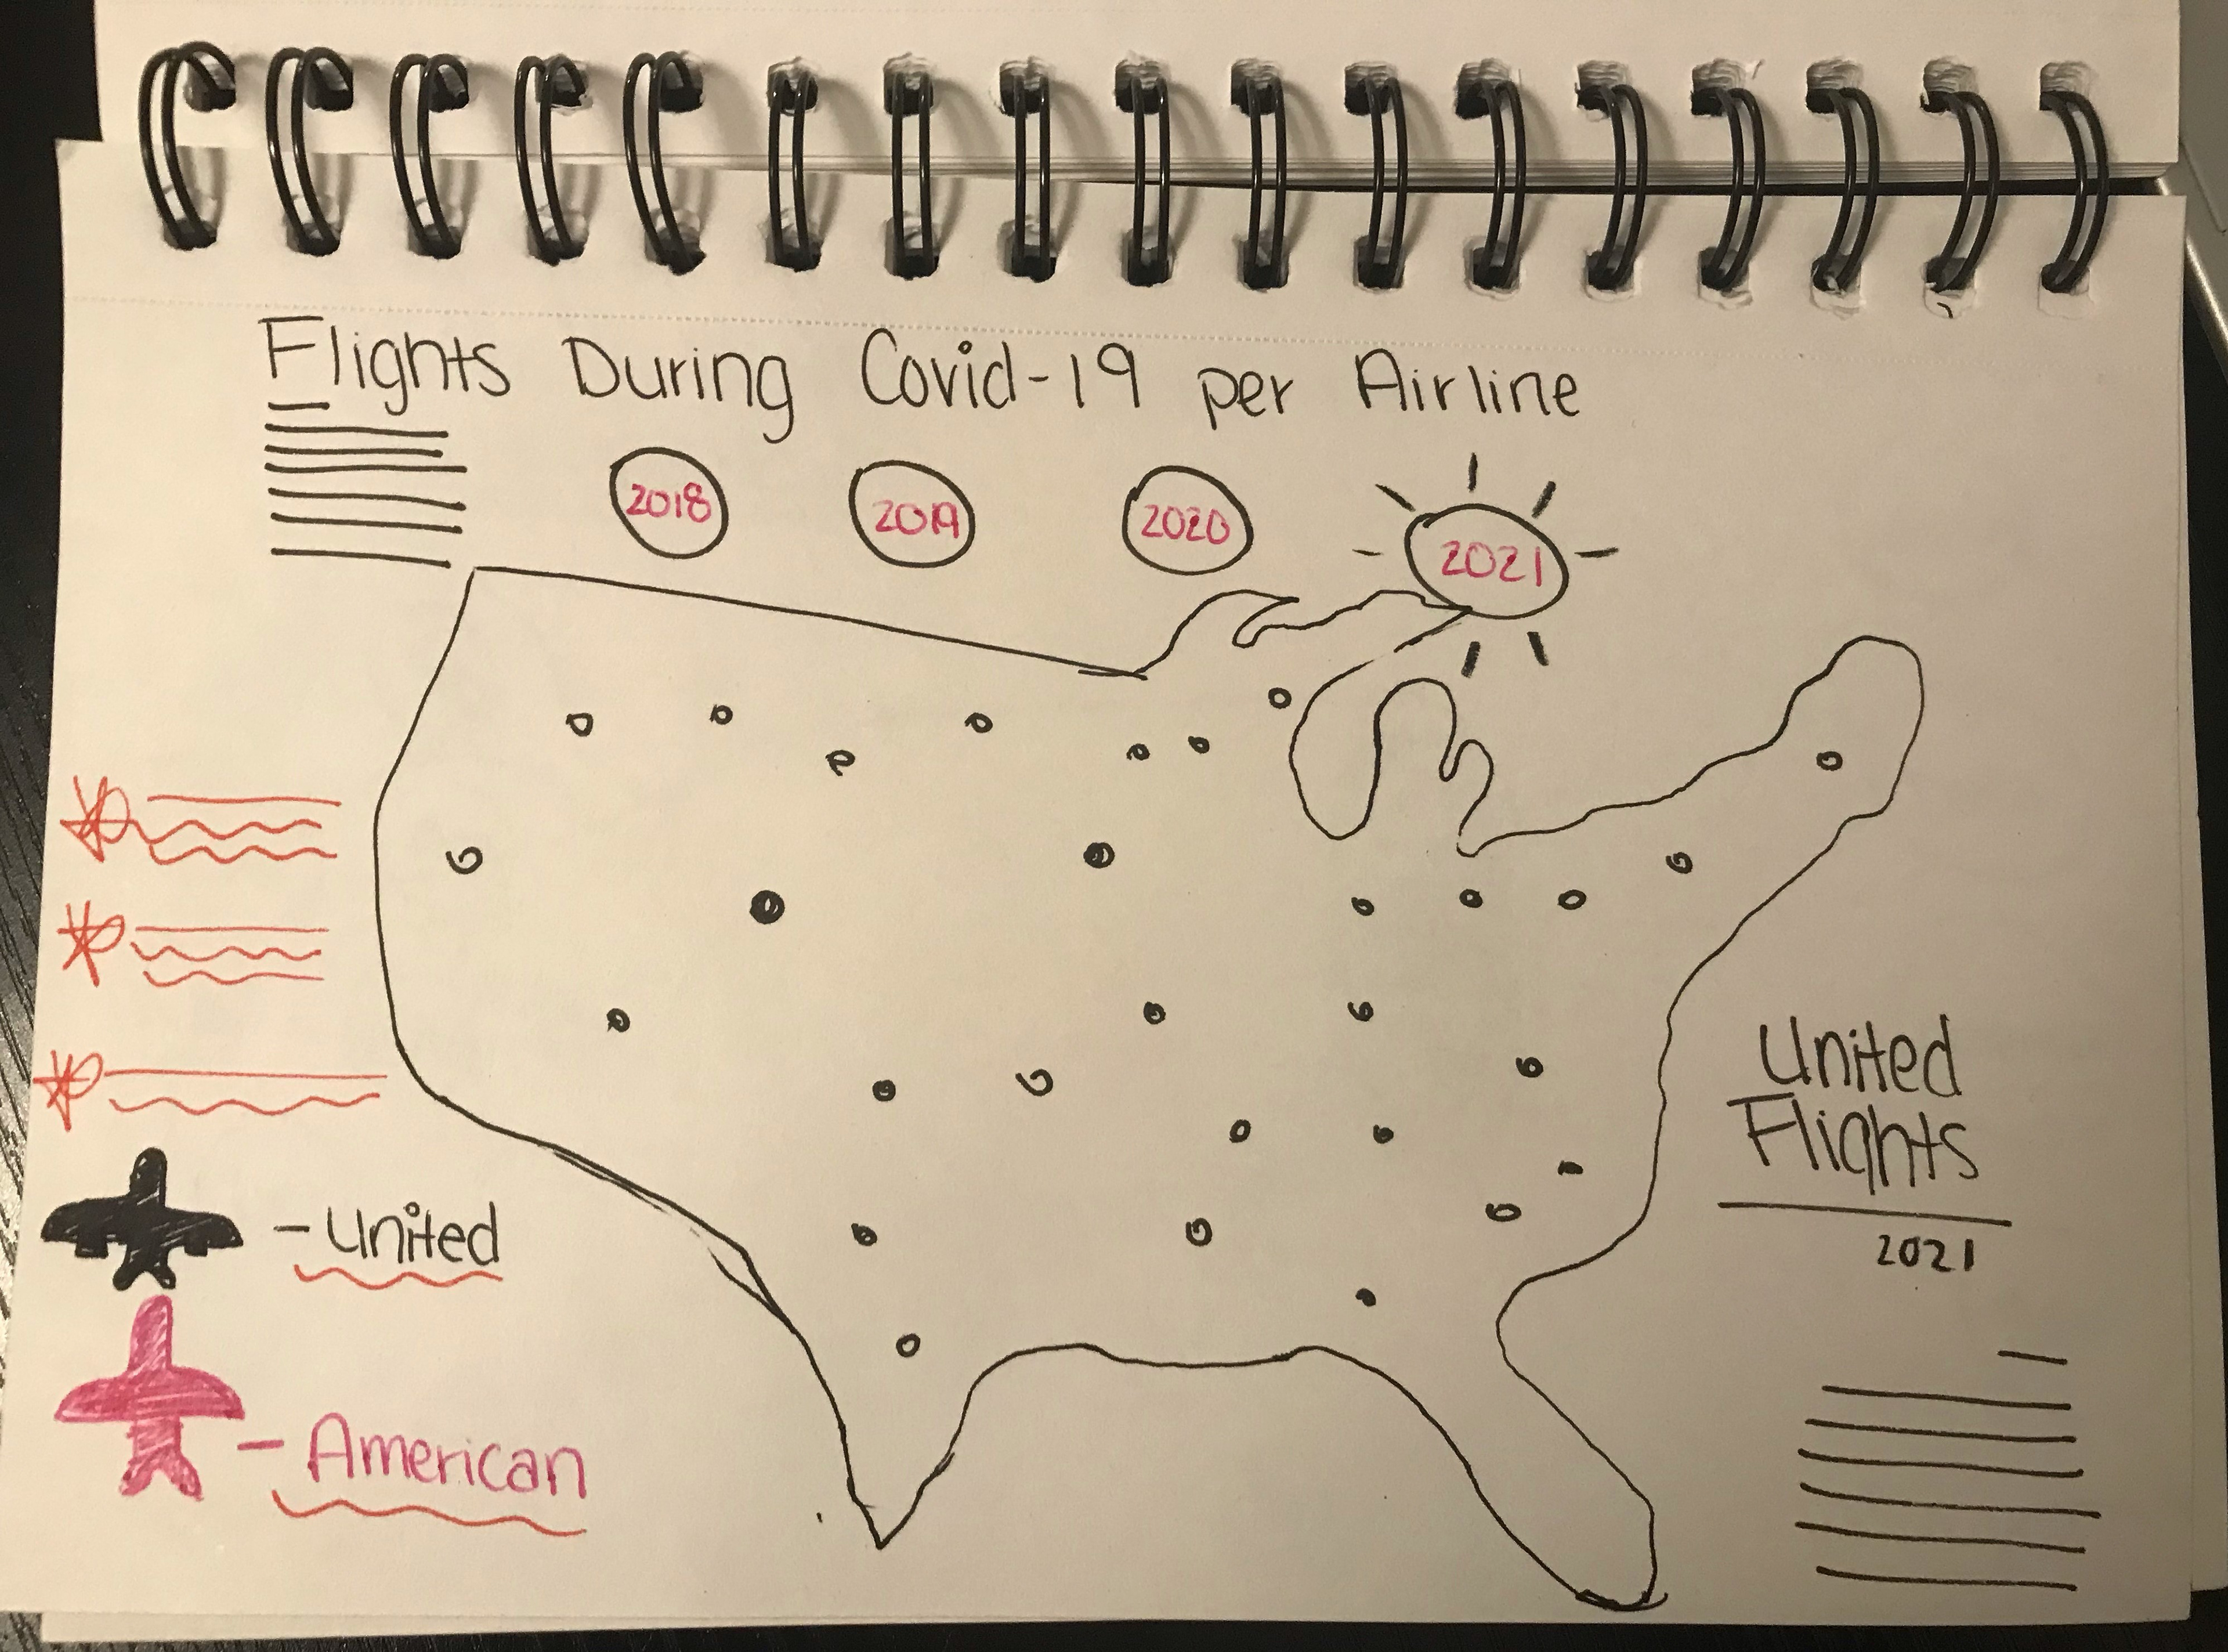 Flights During Covid-19 per Airline
2018 2019 2020 2021
United
Flights
2021
- United
- American